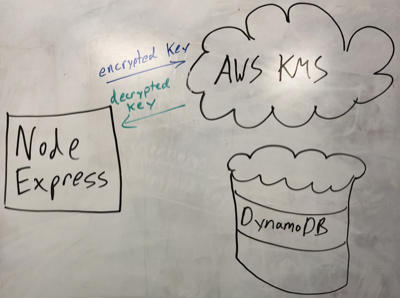 encrypted Key
AWS KMS
decrypted
key
Node
Express
DynamoDB